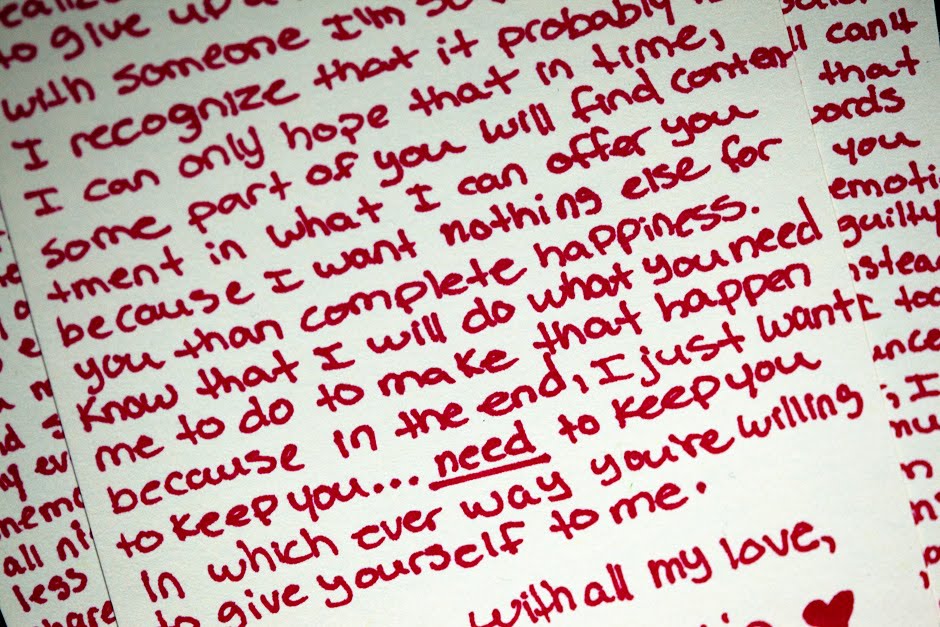 to give up a
with someone I'm so
I recognize that it probably
I can only hope that in time,
some part of you will find conten
tment in what I can offer you
because I want nothing else for
you than complete happiness.
Know that I will do what you need
me to do to make that happen
because in the end, I just want
to keep you... need to keep you
In which ever way you're willing
to give yourself to me.
with all my love,
can't
that
you
emoti
guilty
I too
; I
all ni
less
share